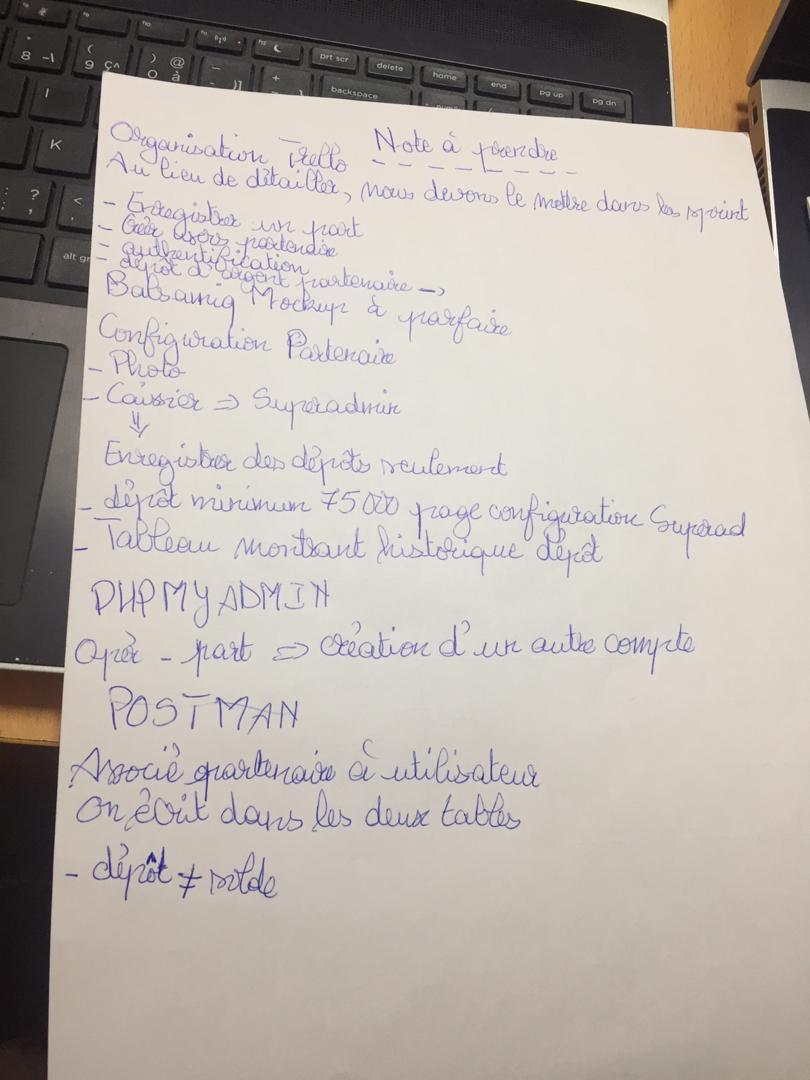 prt scr
delete
home
end
pg up
pg dn
backspace
8
9 ç
0 à
K
alt gr
Note à prendre
Organisation Trello
Au lieu de détailler, nous devons le mettre dans les sprint
- Enregistrer un part
- Créer users partenaire
- authentification
- dépot d'argent partenaire →
Balsamiq Mockup à parfaire
Configuration Partenaire
- Photo
- Caissier ⇒ Superadmin
⇓
Enregistrer des dépôts seulement
- dépôt minimum 75000 page configuration Superad
- Tableau montrant historique dépôt
PHPMYADMIN
Opér - part ⇒ création d'un autre compte
POSTMAN
Associé partenaire à utilisateur
On écrit dans les deux tables
- dépôt ≠ solde